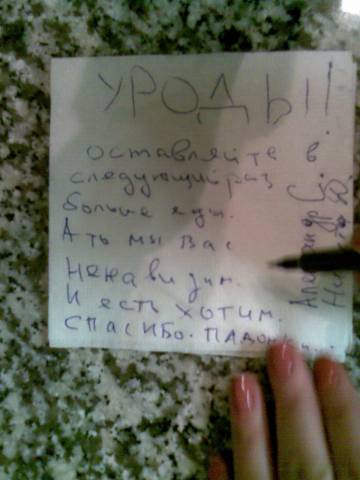 УРОДЫ!
оставляйте в
следующий раз
больше еды.
А то мы вас
ненавидим.
И есть хотим.
СПАСИБО. ПАДОНКИ...
Александр С.